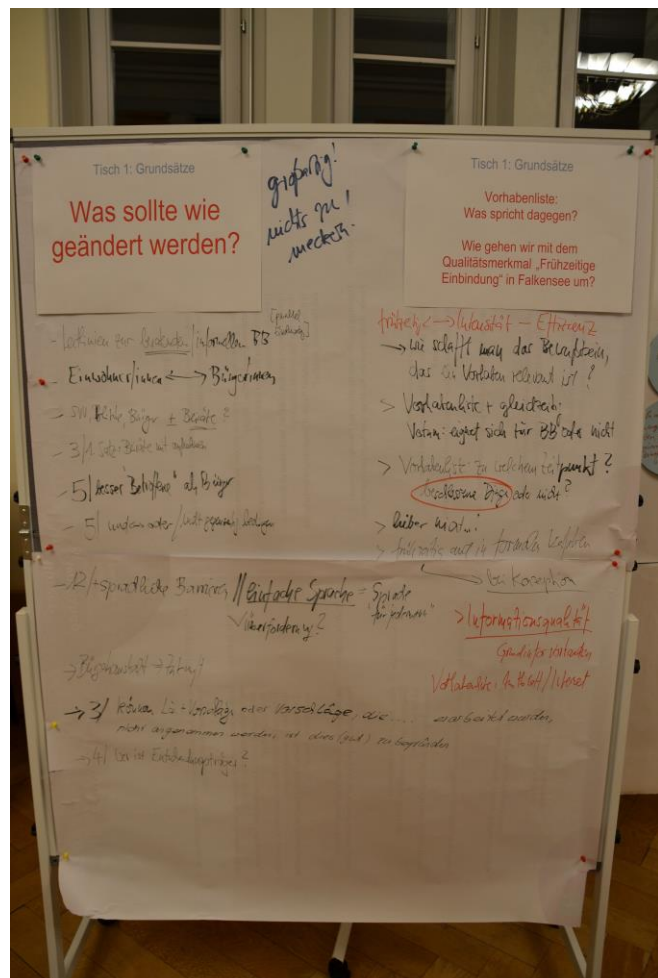 Tisch 1: Grundsätze
Was sollte wie
geändert werden?
großartig!
nichts zu
meckern.
Tisch 1: Grundsätze
Vorhabenliste:
Was spricht dagegen?
Wie gehen wir mit dem
Qualitätsmerkmal „Frühzeitige
Einbindung" in Falkensee um?
- Leitlinien zur /informellen BB
- Einwohner/innen <-> Bürgerinnen
Bürger ± Beiräte?
- 3/ Beiräte mit aufnehmen
- 5/ besser "Betroffene" als Bürger
- 5/
- 12/ + sprachliche Barrieren // einfache Sprache = Sprache
Überforderung?
"für jedermann"
-> Bürgerhaushalt -> Zukunft
-> 3/ können Lö-Vorschläge oder Vorschläge, die .... erarbeitet wurden,
nicht angenommen werden, ist dies (gut) zu begründen
-> 4/ Wer ist Entscheidungsträger?
frühzeitig <-> Intensität - Effizienz
-> wie schafft man das Bewußtsein,
das ein Vorhaben relevant ist?
> Vorhabenliste + gleichzeit.
Votum: eignet sich für BB oder nicht
> Vorhabenliste: zu welchem Zeitpunkt?
beschlossene Dinge oder nicht?
> lieber mal..!
> frühzeitig auch in formalen
bei Konzeption
> Informationsqualität
Grundinfos vorhanden
Vorhabenliste: Amtsblatt/Internet